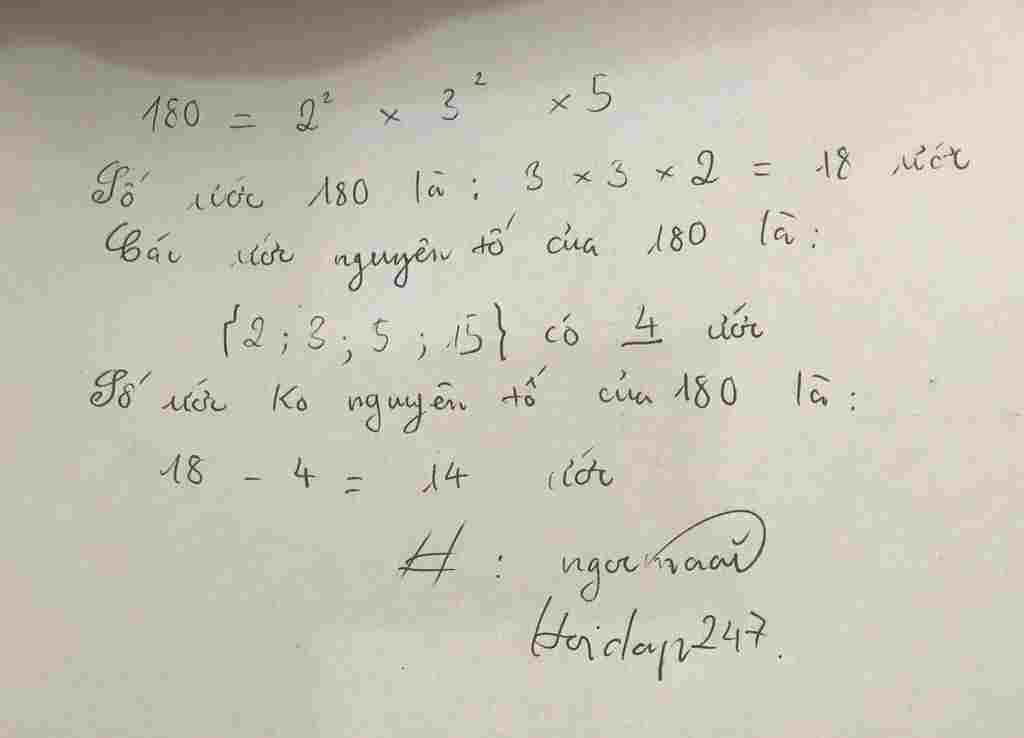 180 = 2² × 3² × 5
Số ước 180 là: 3 × 3 × 2 = 18 ước
Các ước nguyên tố của 180 là:
{2; 3; 5; 15} có 4 ước
Số ước ko nguyên tố của 180 là:
18 - 4 = 14 ước
Hoidap247.